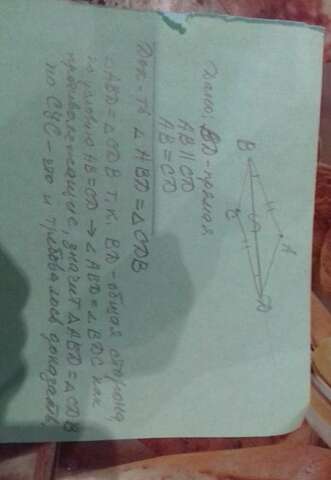 Дано: BD - прямая
AB || CD
AB = CD
B
A
C
D
Док-ть △ ABD = △ CDB
△ ABD = △ CDB т.к. BD - общая сторона
по условию AB = CD → ∠ ABD = ∠ BDC как
значит △ ABD = △ CDB
по СУС - что и требовалось доказать.